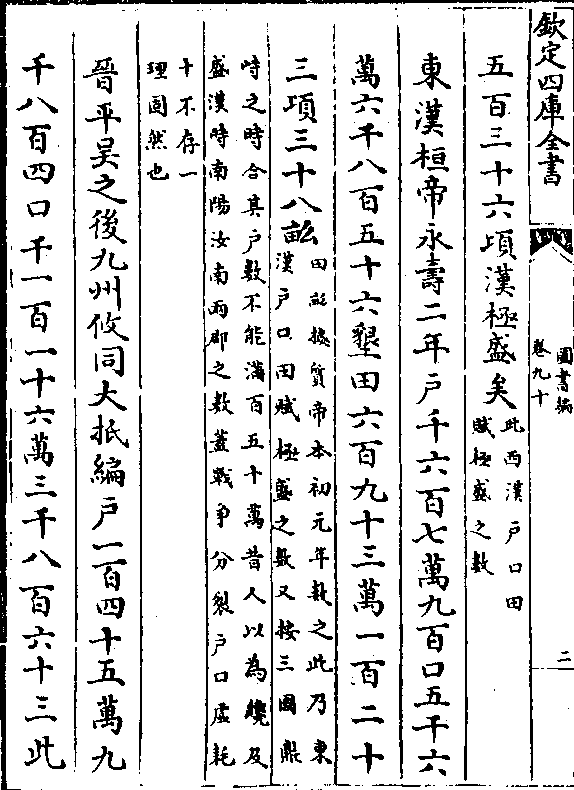 欽定四庫全書
圖書編
卷九十
二
五百三十六頃漢極盛矣此西漢戶口田
賦極盛之數
東漢桓帝永壽二年戶千六百七萬九百口五千六
萬六千八百五十六墾田六百九十三萬一百二十
三頃三十八畝田畝據質帝本初元年數之此乃東
漢戶口田賦極盛之數又按三國鼎
峙之時合其戶數不能滿百五十萬昔人以為纔及
盛漢時南陽汝南兩郡之數蓋戰爭分裂戶口虛耗
十不存一
理固然也
晉平吳之後九州攸同大抵編戶二百四十五萬九
千八百四口千一百一十六萬三千八百六十三此